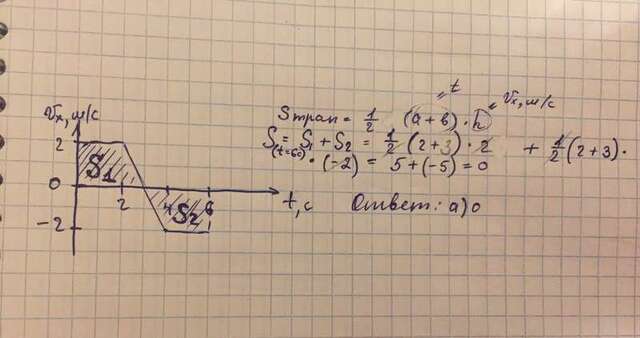 Vx, м/с
2
0
-2
S1
S2
2
4
6
t, с
" t
Sтрап = 1/2 (a + b) · h " Vx, м/с
S(t=6c) = S1 + S2 = 1/2 (2+3) · 2 + 1/2 (2+3) ·
· (-2) = 5 + (-5) = 0
Ответ: а) 0